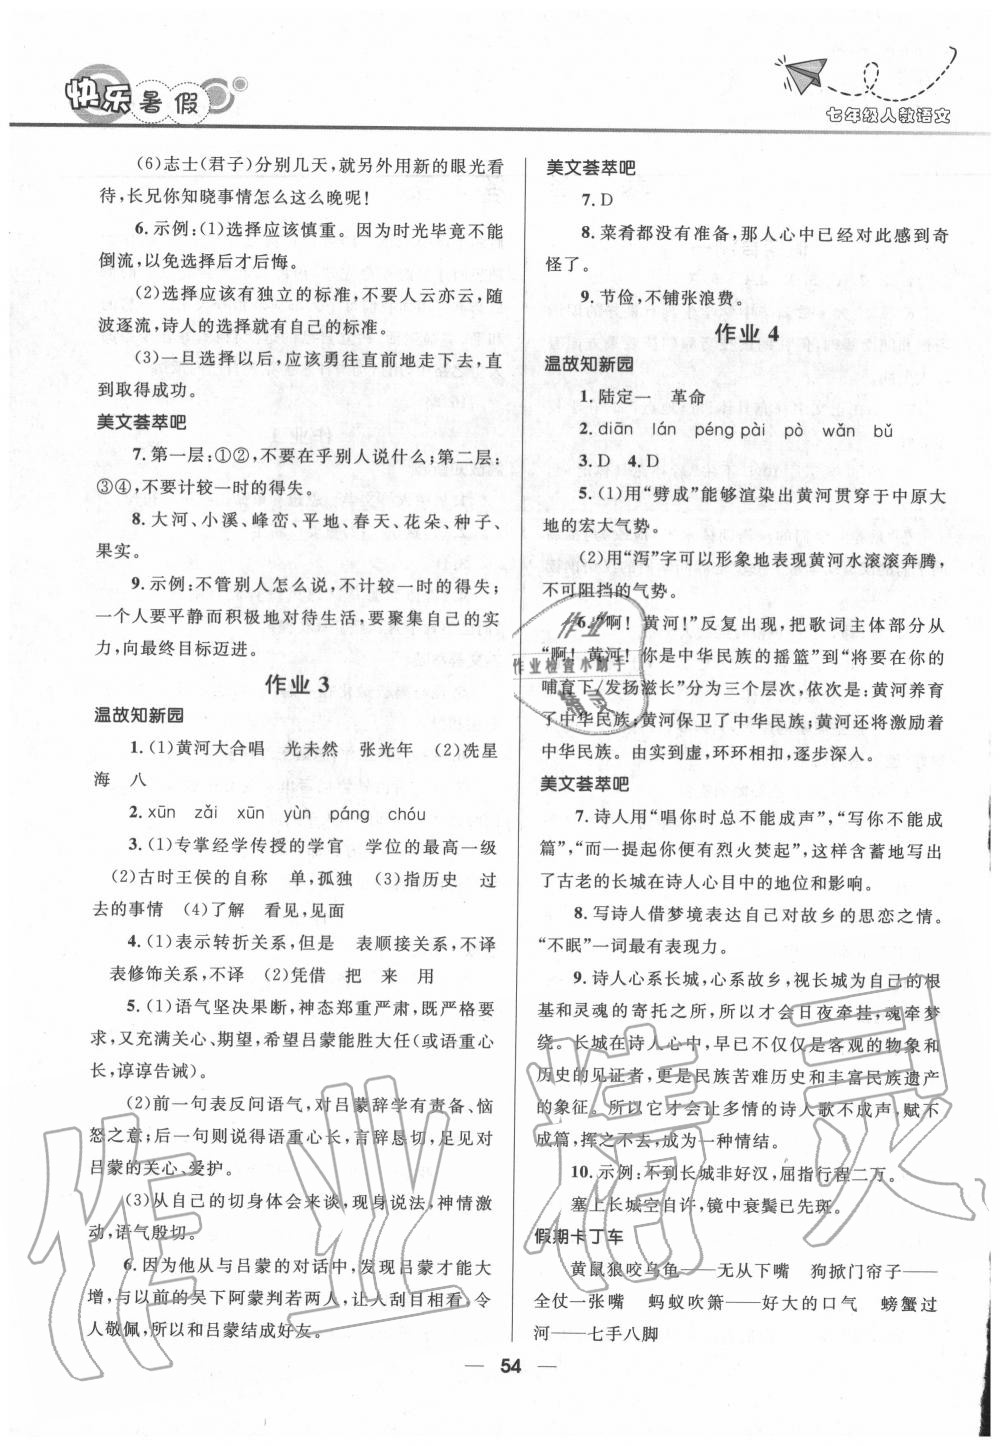 快乐暑假
七年级人教语文
(6)志士(君子)分别几天,就另外用新的眼光看
待,长兄你知晓事情怎么这么晚呢!
6. 示例:(1)选择应该慎重。因为时光毕竟不能
倒流,以免选择后才后悔。
(2)选择应该有独立的标准,不要人云亦云,随
波逐流,诗人的选择就有自己的标准。
(3)一旦选择以后,应该勇往直前地走下去,直
到取得成功。
美文荟萃吧
7. 第一层:①②,不要在乎别人说什么;第二层:
③④,不要计较一时的得失。
8. 大河、小溪、峰峦、平地、春天、花朵、种子、
果实。
9. 示例:不管别人怎么说,不计较一时的得失;
一个人要平静而积极地对待生活,要聚集自己的实
力,向最终目标迈进。
作业 3
温故知新园
1. (1)黄河大合唱 光未然 张光年 (2)冼星
海 八
2. xūn zǎi xūn yùn páng chóu
3. (1)专掌经学传授的学官 学位的最高一级
(2)古时王侯的自称 单,孤独 (3)指历史 过
去的事情 (4)了解 看见,见面
4. (1)表示转折关系,但是 表顺接关系,不译
表修饰关系,不译 (2)凭借 把 来 用
5. (1)语气坚决果断,神态郑重严肃,既严格要
求,又充满关心、期望,希望吕蒙能胜大任(或语重心
长,谆谆告诫)。
(2)前一句表反问语气,对吕蒙辞学有责备、恼
怒之意;后一句则说得语重心长,言辞恳切,足见对
吕蒙的关心、爱护。
(3)从自己的切身体会来谈,现身说法,神情激
动,语气殷切。
6. 因为他从与吕蒙的对话中,发现吕蒙才能大
增,与以前的吴下阿蒙判若两人,让人刮目相看,令
人敬佩,所以和吕蒙结成好友。
美文荟萃吧
7. D
8. 菜肴都没有准备,那人心中已经对此感到奇
怪了。
9. 节俭,不铺张浪费。
作业 4
温故知新园
1. 陆定一 革命
2. diān lán péng pài pò wǎn bǔ
3. D 4. D
5. (1)用“劈成”能够渲染出黄河贯穿于中原大
地的宏大气势。
(2)用“泻”字可以形象地表现黄河水滚滚奔腾,
不可阻挡的气势。
6. “啊! 黄河!”反复出现,把歌词主体部分从
“啊! 黄河! 你是中华民族的摇篮”到“将要在你的
哺育下/发扬滋长”分为三个层次,依次是:黄河养育
了中华民族;黄河保卫了中华民族;黄河还将激励着
中华民族。由实到虚,环环相扣,逐步深人。
美文荟萃吧
7. 诗人用“唱你时总不能成声”,“写你不能成
篇”,“而一提起你便有烈火焚起”,这样含蓄地写出
了古老的长城在诗人心目中的地位和影响。
8. 写诗人借梦境表达自己对故乡的思恋之情。
“不眠”一词最有表现力。
9. 诗人心系长城,心系故乡,视长城为自己的根
基和灵魂的寄托之所,所以才会日夜牵挂,魂牵梦
绕。长城在诗人心中,早已不仅仅是客观的物象和
历史的见证者,更是民族苦难历史和丰富民族遗产
的象征。所以它才会让多情的诗人歌不成声,赋不
成篇,挥之不去,成为一种情结。
10. 示例:不到长城非好汉,屈指行程二万。
塞上长城空自许,镜中衰鬓已先斑。
假期卡丁车
黄鼠狼咬乌龟——无从下嘴 狗掀门帘子——
全仗一张嘴 蚂蚁吹箫——好大的口气 螃蟹过
河——七手八脚
54
作业
作业检查小助手
精灵
作业精灵